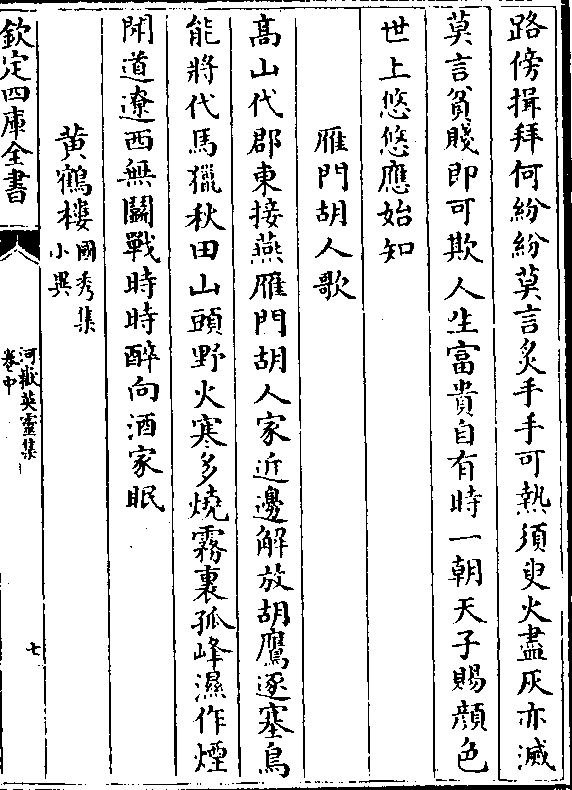 路傍揖拜何紛紛莫言炙手手可熱須臾火盡灰亦滅
莫言貧賤即可欺人生富貴自有時一朝天子賜顔色
世上悠悠應始知
雁門胡人歌
髙山代郡東接燕雁門胡人家近邊解放胡鷹逐塞鳥
能將代馬獵秋田山頭野火寒多燒霧裏孤峰濕作煙
聞道遼西無鬭戰時時醉向酒家眠
黄鶴樓國秀集小異
欽定四庫全書
河嶽英靈集
卷中
七